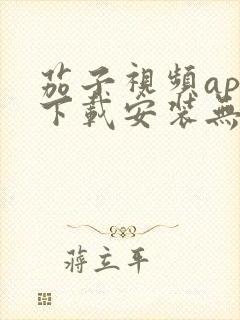 茄子視頻ap
下載安裝無
蔣立平